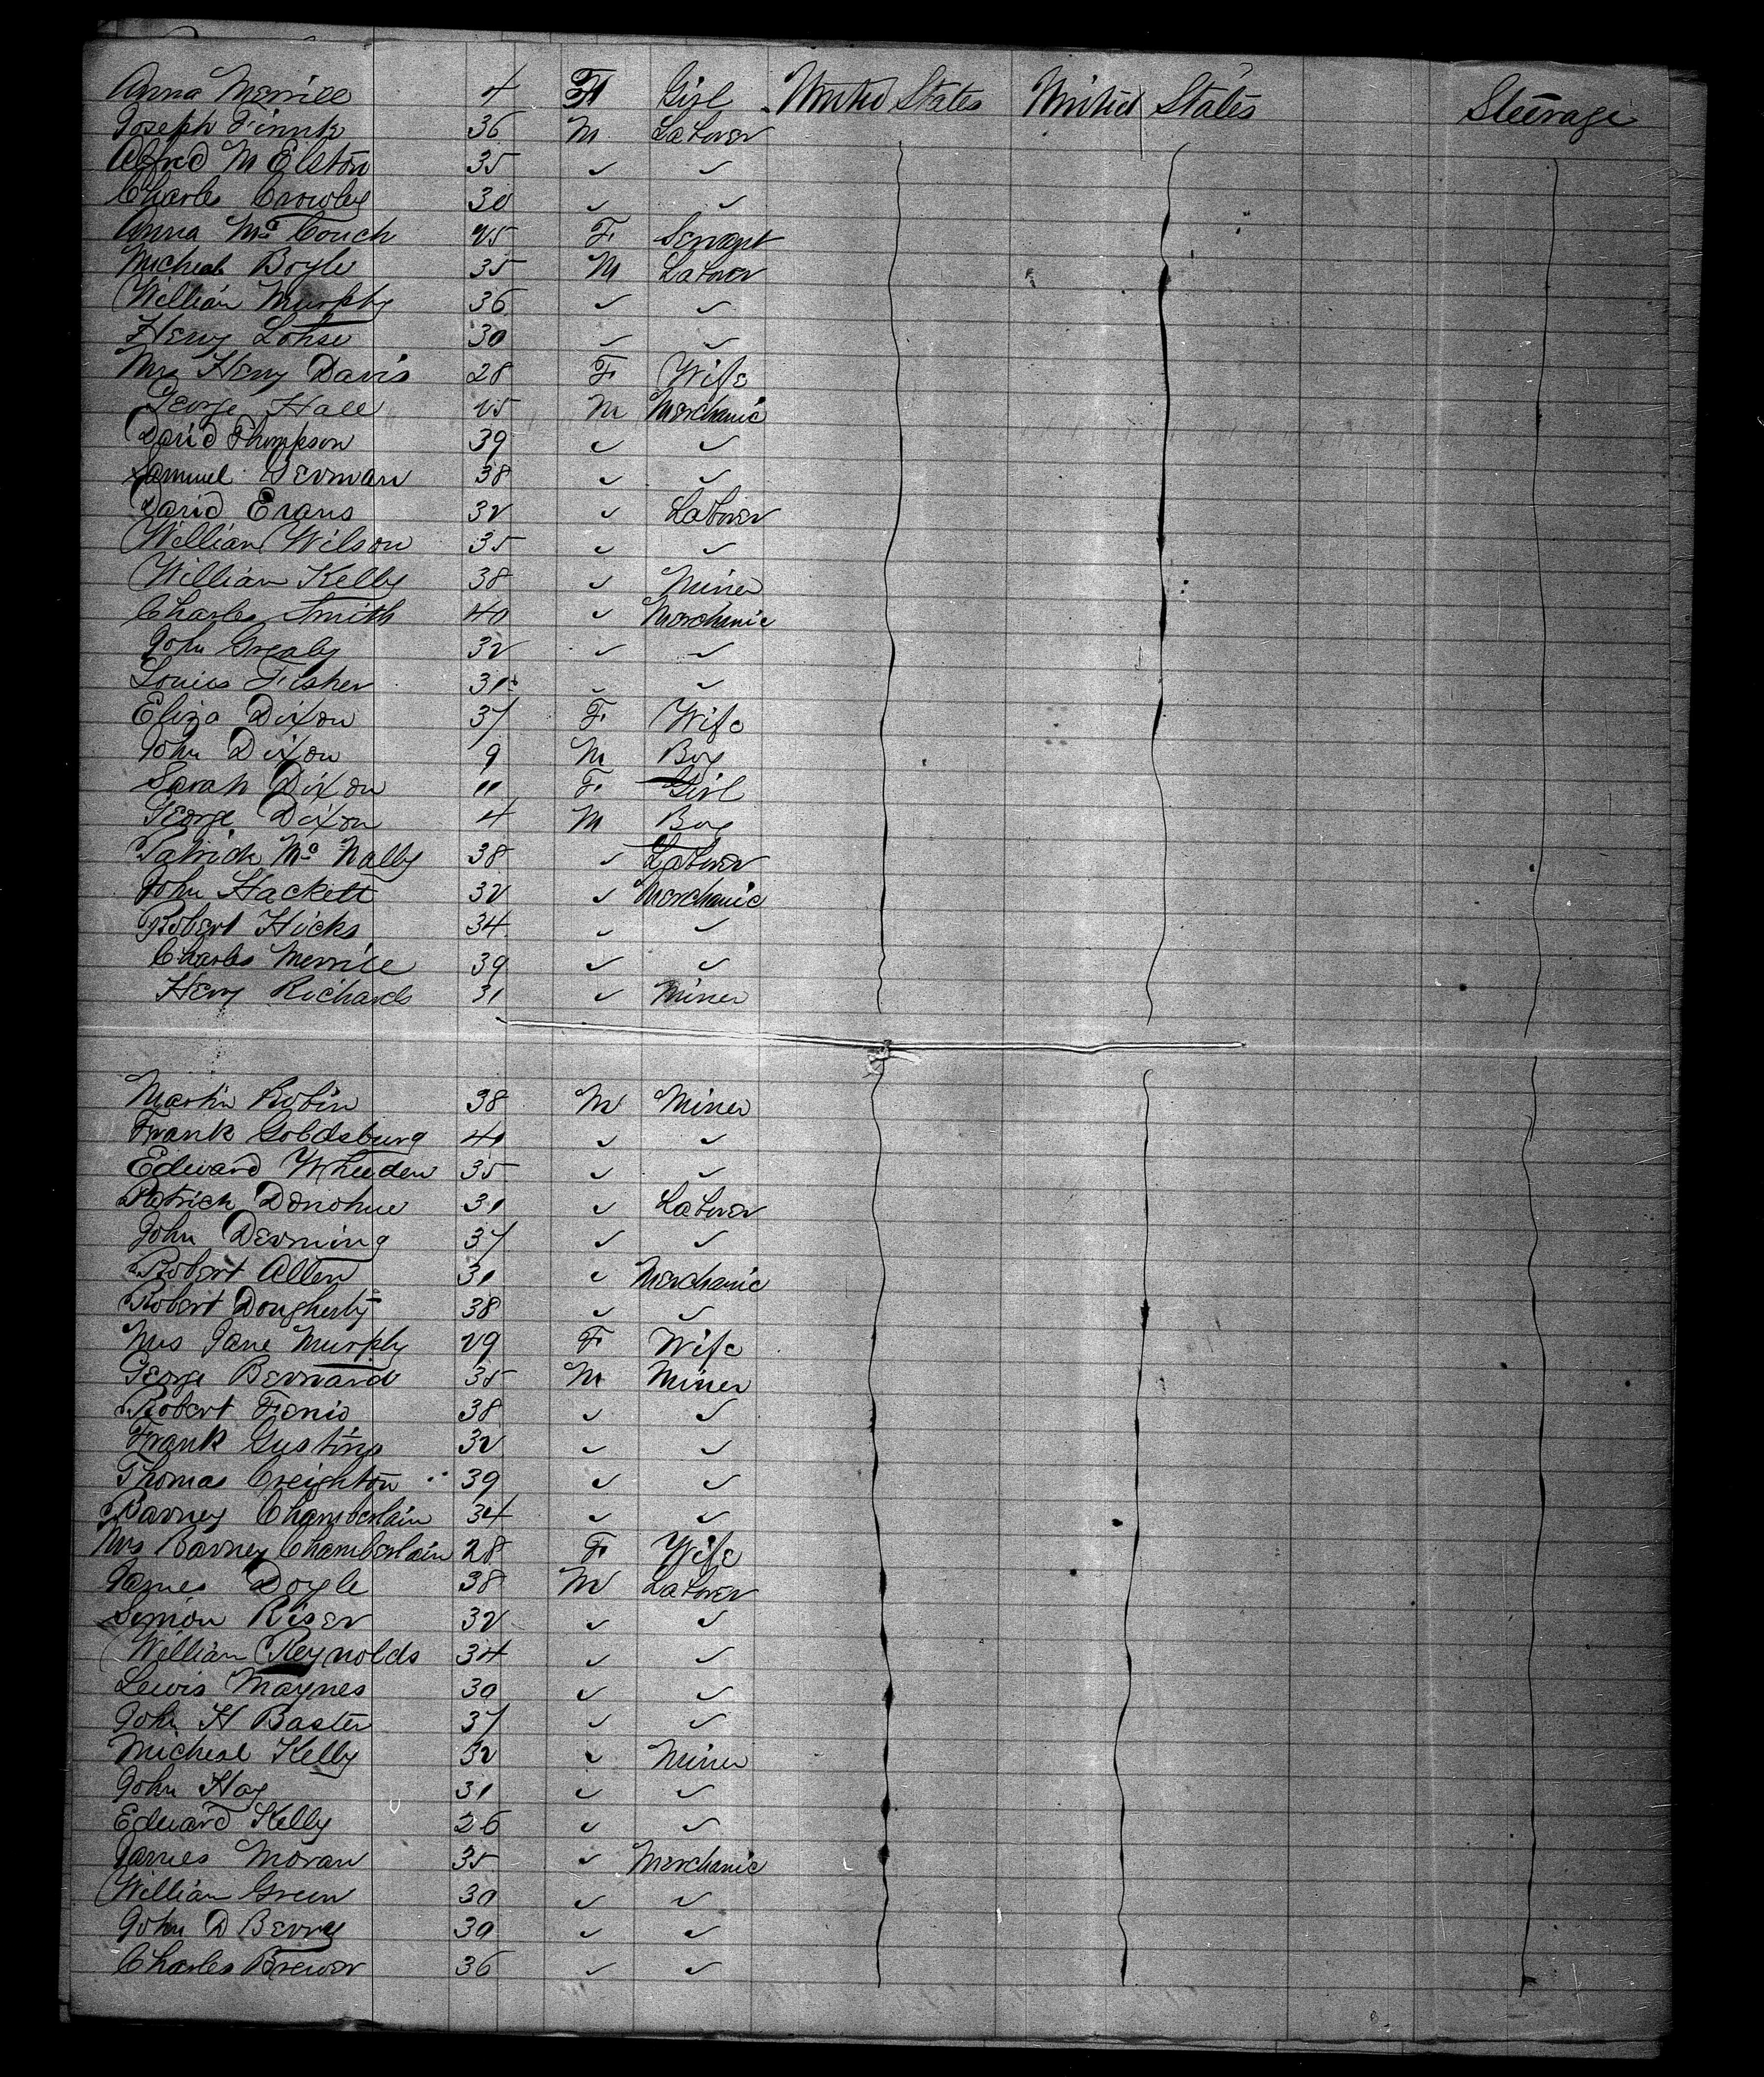 Anna Merrill 4 F Girl United States United States Steerage
Joseph Finnk 36 M Laborer
Alfred M Elston 35 ✓ ✓
Charles Crowley 30 ✓ ✓
Anna Mc Couch 25 F Servant
Micheal Boyle 35 M Laborer
William Murphy 36 ✓ ✓
Henry Lohse 30 ✓ ✓
Mrs Henry Davis 28 F Wife
George Hall 25 M Merchanic
David Thompson 39 ✓ ✓
Samuel German 38 ✓ ✓
David Evans 32 ✓ Laborer
William Wilson 35 ✓ ✓
William Kelly 38 ✓ Miner
Charles Smith 40 ✓ Merchanic
John Grealy 32 ✓ ✓
Louis Fisher 31 ✓ ✓
Eliza Dixon 37 F Wife
John Dixon 9 M Boy
Sarah Dixon 11 F Girl
George Dixon 4 M Boy
Patrick Mc Nally 38 ✓ Laborer
John Hackett 32 ✓ Merchanic
Robert Hicks 34 ✓ ✓
Charles Merrill 39 ✓ ✓
Henry Richards 31 ✓ Miner
Martin Robin 38 M Miner
Frank Goldsburg 40 ✓ ✓
Edward Wheeden 35 ✓ ✓
Patrick Donohue 31 ✓ Laborer
John Derming 37 ✓ ✓
Robert Allen 31 ✓ Merchanic
Robert Dougherty 38 ✓ ✓
Mrs Jane Murphy 29 F Wife
George Bernard 35 M Miner
Robert Fenis 38 ✓ ✓
Frank Gusting 32 ✓ ✓
Thomas Creighton 39 ✓ ✓
Barney Chamberlain 34 ✓ ✓
Mrs Barney Chamberlain 28 F Wife
James Doyle 38 M Laborer
Simon Riser 32 ✓ ✓
William Reynolds 34 ✓ ✓
Lewis Maynes 30 ✓ ✓
John H Baster 37 ✓ ✓
Micheal Kelly 32 ✓ Miner
John Hay 31 ✓ ✓
Edward Kelly 26 ✓ ✓
James Moran 35 ✓ Merchanic
William Green 30 ✓ ✓
John D Berry 30 ✓ ✓
Charles Brewer 36 ✓ ✓